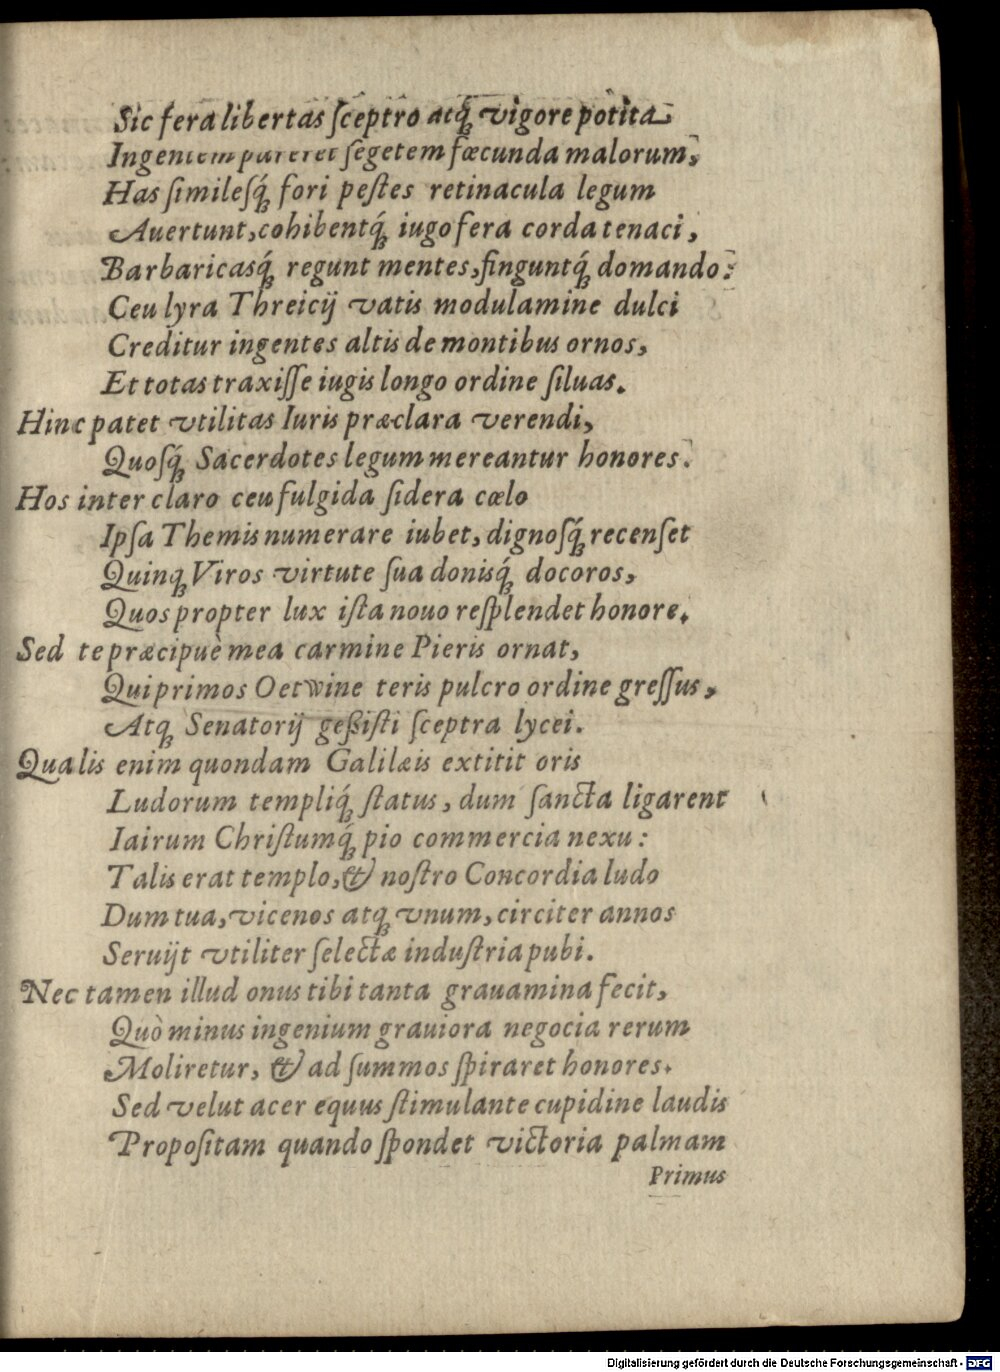 Sic fera libertas ſceptro atq́; vigore potita
Ingentem pareret ſegetem fœcunda malorum,
Has ſimileſq́; fori peſtes retinacula legum
Auertunt, cohibentq́; iugo fera corda tenaci,
Barbaricasq́; regunt mentes, finguntq́; domando:
Ceu lyra Threicij vatis modulamine dulci
Creditur ingentes altis de montibus ornos,
Et totas traxiſſe iugis longo ordine ſiluas.
Hinc patet vtilitas Iuris præclara verendi,
Quoſq́; Sacerdotes legum mereantur honores.
Hos inter claro ceu fulgida ſidera cœlo
Ipſa Themis numerare iubet, dignoſq́; recenſet
Quinq; Viros virtute ſua donisq́; docoros,
Quos propter lux iſta nouo reſplendet honore.
Sed te præcipuè mea carmine Pieris ornat,
Qui primos Oetwine teris pulcro ordine greſſus,
Atq; Senatorij geßiſti ſceptra lycei.
Qualis enim quondam Galilæis extitit oris
Ludorum templiq́; ſtatus, dum ſancta ligarent
Iairum Chriſtumq́; pio commercia nexu:
Talis erat templo, & noſtro Concordia ludo
Dum tua, vicenos atq; vnum, circiter annos
Seruijt vtiliter ſelectæ induſtria pubi.
Nec tamen illud onus tibi tanta grauamina fecit,
Quò minus ingenium grauiora negocia rerum
Moliretur, & ad ſummos ſpiraret honores.
Sed velut acer equus ſtimulante cupidine laudis
Propoſitam quando ſpondet victoria palmam
Primus
Digitalisierung gefördert durch die Deutsche Forschungsgemeinschaft - DFG